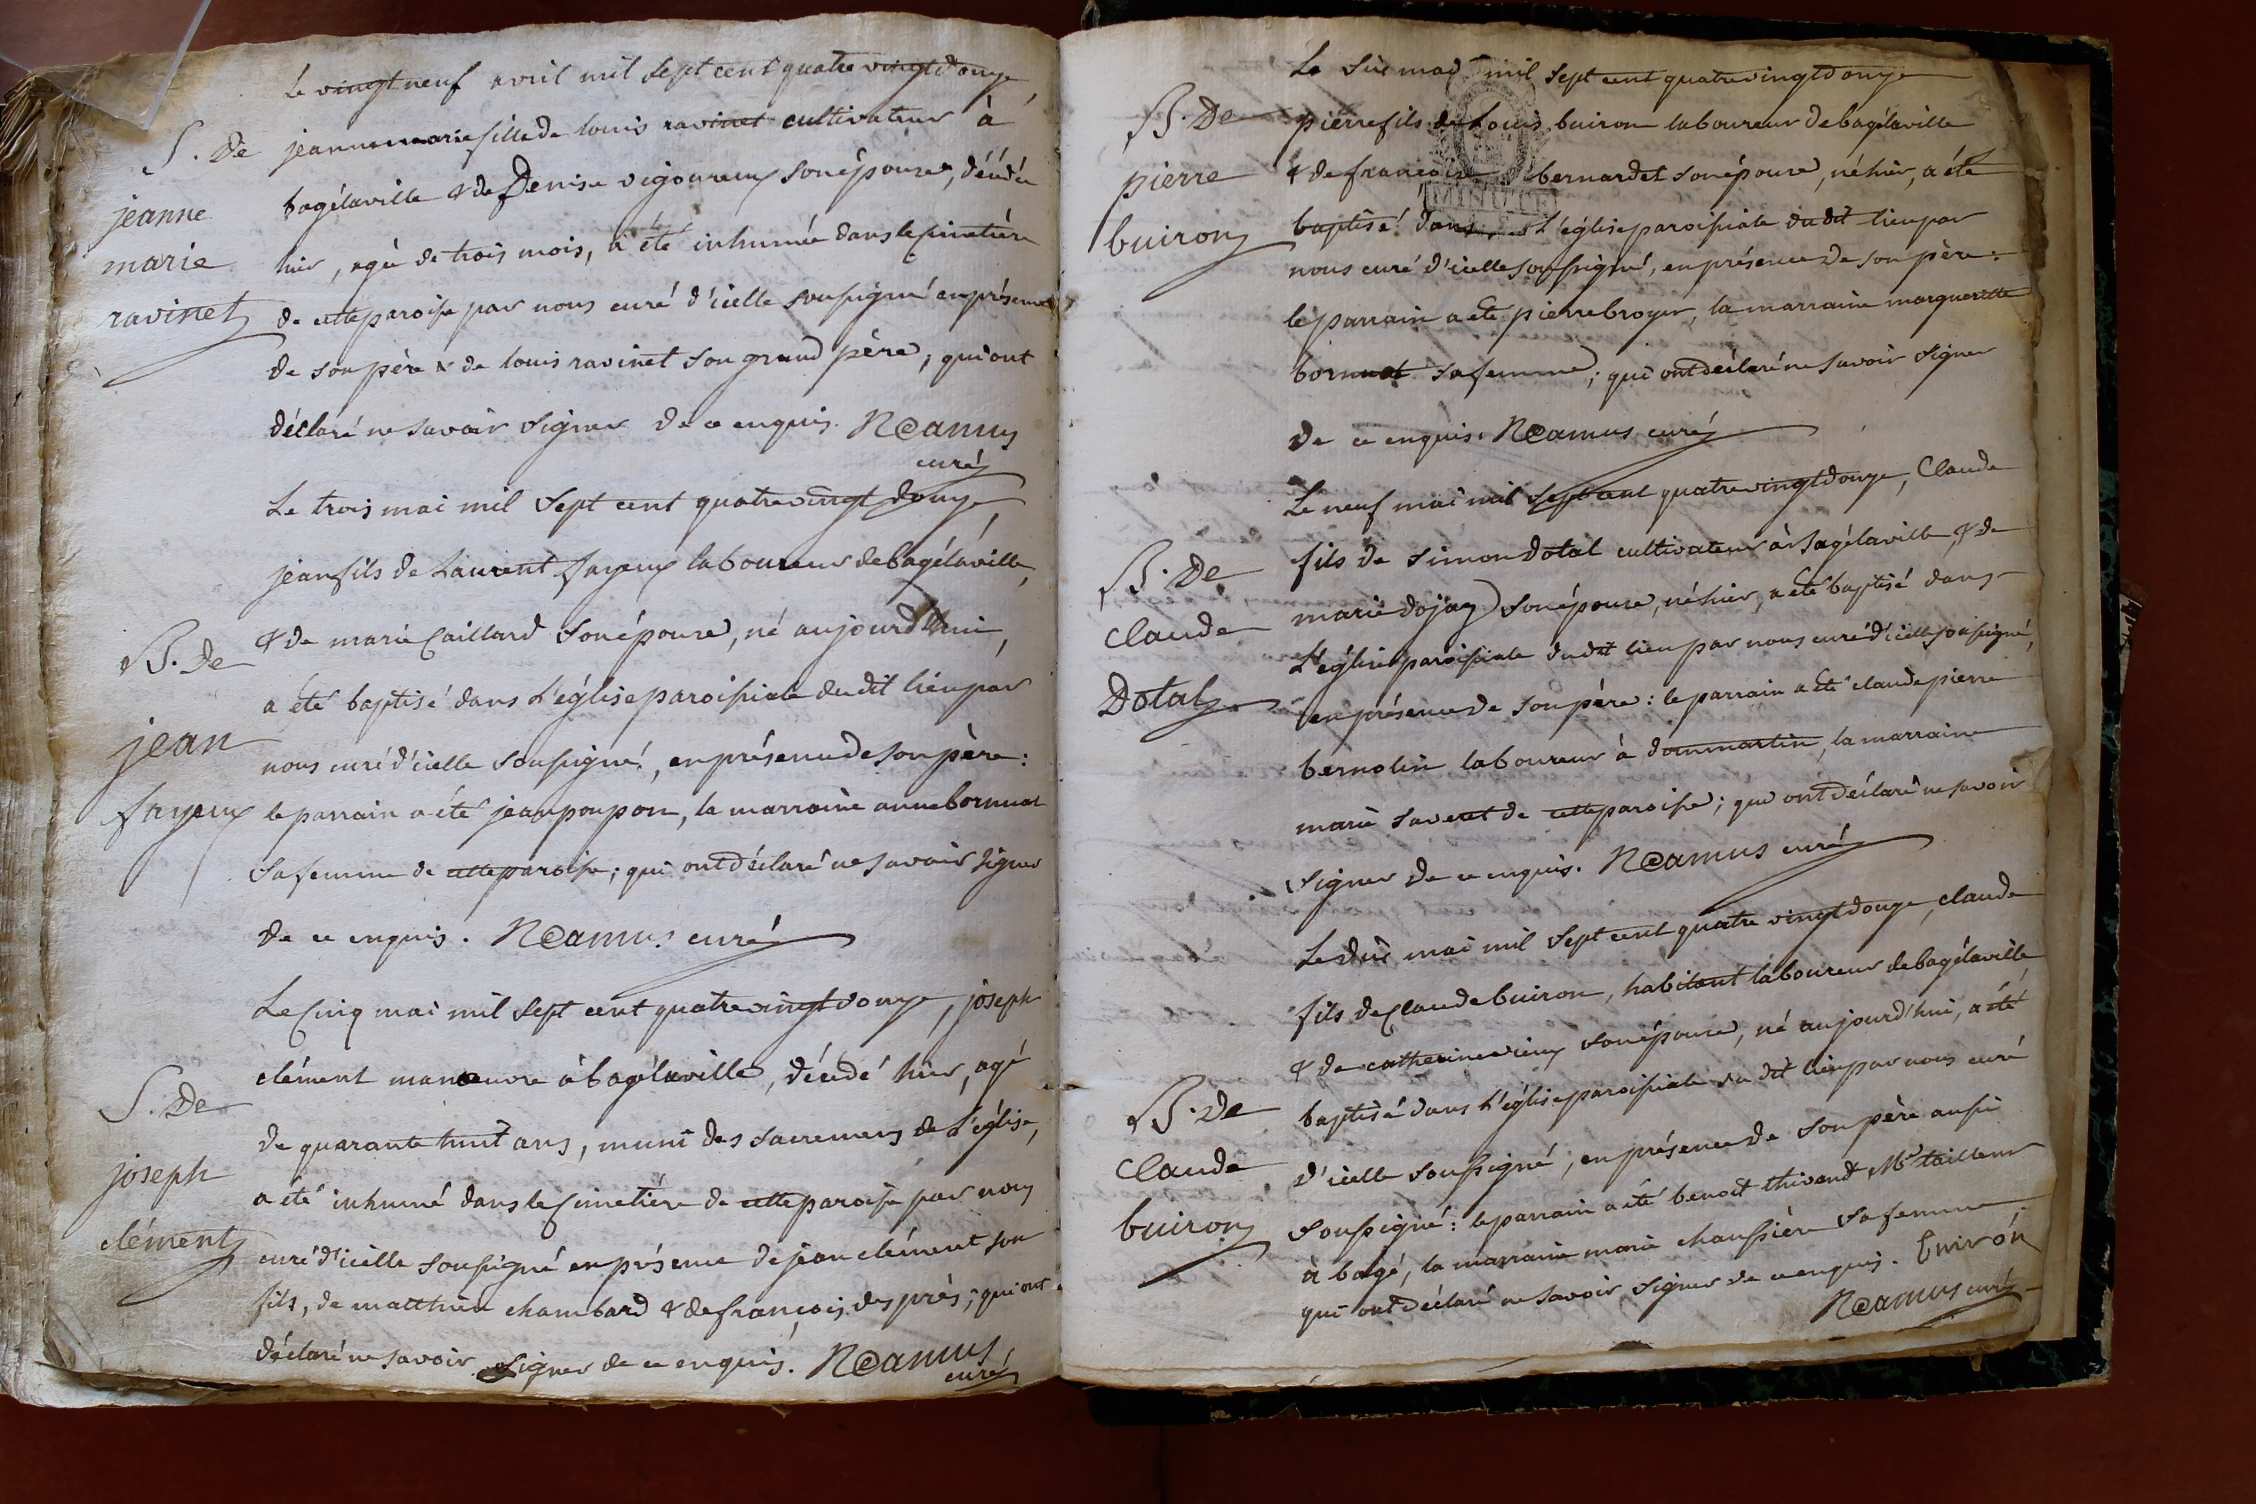 Le vingt neuf avril mil sept cent quatre vingt douze,
S. de
jeanne
marie
ravinet
jeanne marie fille de louis ravinet cultivateur à
bagélaville & de Denise vigoureux son épouse, décédée
hier, agée de trois mois, a été inhumée dans le cimetière
de cette paroisse par nous curé d'icelle soussigné en présence
de son père & de louis ravinet son grand père, qui ont
déclaré ne savoir signer de ce enquis. Neamus
curé
Le trois mai mil sept cent quatre vingt douze,
B. de
jean
fayeux
jean fils de Laurent fayeux laboureur de bagélaville,
& de marie Caillard son épouse, né aujourd'hui,
a été baptisé dans l'église paroissiale dudit lieu par
nous curé d'icelle soussigné, en présence de son père :
le parrain a été jean poupon, la marraine anne bornuat
sa femme de cette paroisse ; qui ont déclaré ne savoir signer
de ce enquis. Neamus curé
Le Cinq mai mil sept cent quatre vingt douze, joseph
S. de
joseph
clément
clément manœuvre à bagélaville, décédé hier, agé
de quarante huit ans, muni des sacremens de l'église,
a été inhumé dans le cimetière de cette paroisse par nous
curé d'icelle soussigné en présence de jean clément son
fils, de matthieu chambard & de françois des près ; qui ont
déclaré ne savoir signer de ce enquis. Neamus
curé
Le six mai mil sept cent quatre vingt douze
B. de
pierre
buiron
pierre fils de Louis buiron laboureur de bagélaville
& de françoise bernardet son épouse, né hier, a été
MINUTE
baptisé dans l'église paroissiale dudit lieu par
nous curé d'icelle soussigné, en présence de son père :
le parrain a été pierre broyer, la marraine marguerite
bornuat sa femme ; qui ont déclaré ne savoir signer
de ce enquis. Neamus curé
Le neuf mai mil sept cent quatre vingt douze, Claude
B. de
Claude
Dotal
fils de simon dotal cultivateur à bagélaville & de
marie dojay son épouse, né hier, a été baptisé dans
l'église paroissiale dudit lieu par nous curé d'icelle soussigné,
en présence de son père : le parrain a été claude pierre
bernolin laboureur à dommartin, la marraine
marie saveret de cette paroisse ; qui ont déclaré ne savoir
signer de ce enquis. Neamus curé
Le dix mai mil sept cent quatre vingt douze, claude
B. de
Claude
buiron
fils de Claude buiron, habitant laboureur de bagélaville
& de catherine vieux son épouse, né aujourd'hui, a été
baptisé dans l'église paroissiale du dit lieu par nous curé
d'icelle soussigné, en présence de son père aussi
soussigné : le parrain a été benoit thivend Mᵉ tailleur
à bagé, la marraine marie chaussière sa femme
qui ont déclaré ne savoir signer de ce enquis. buiron
Neamus curé